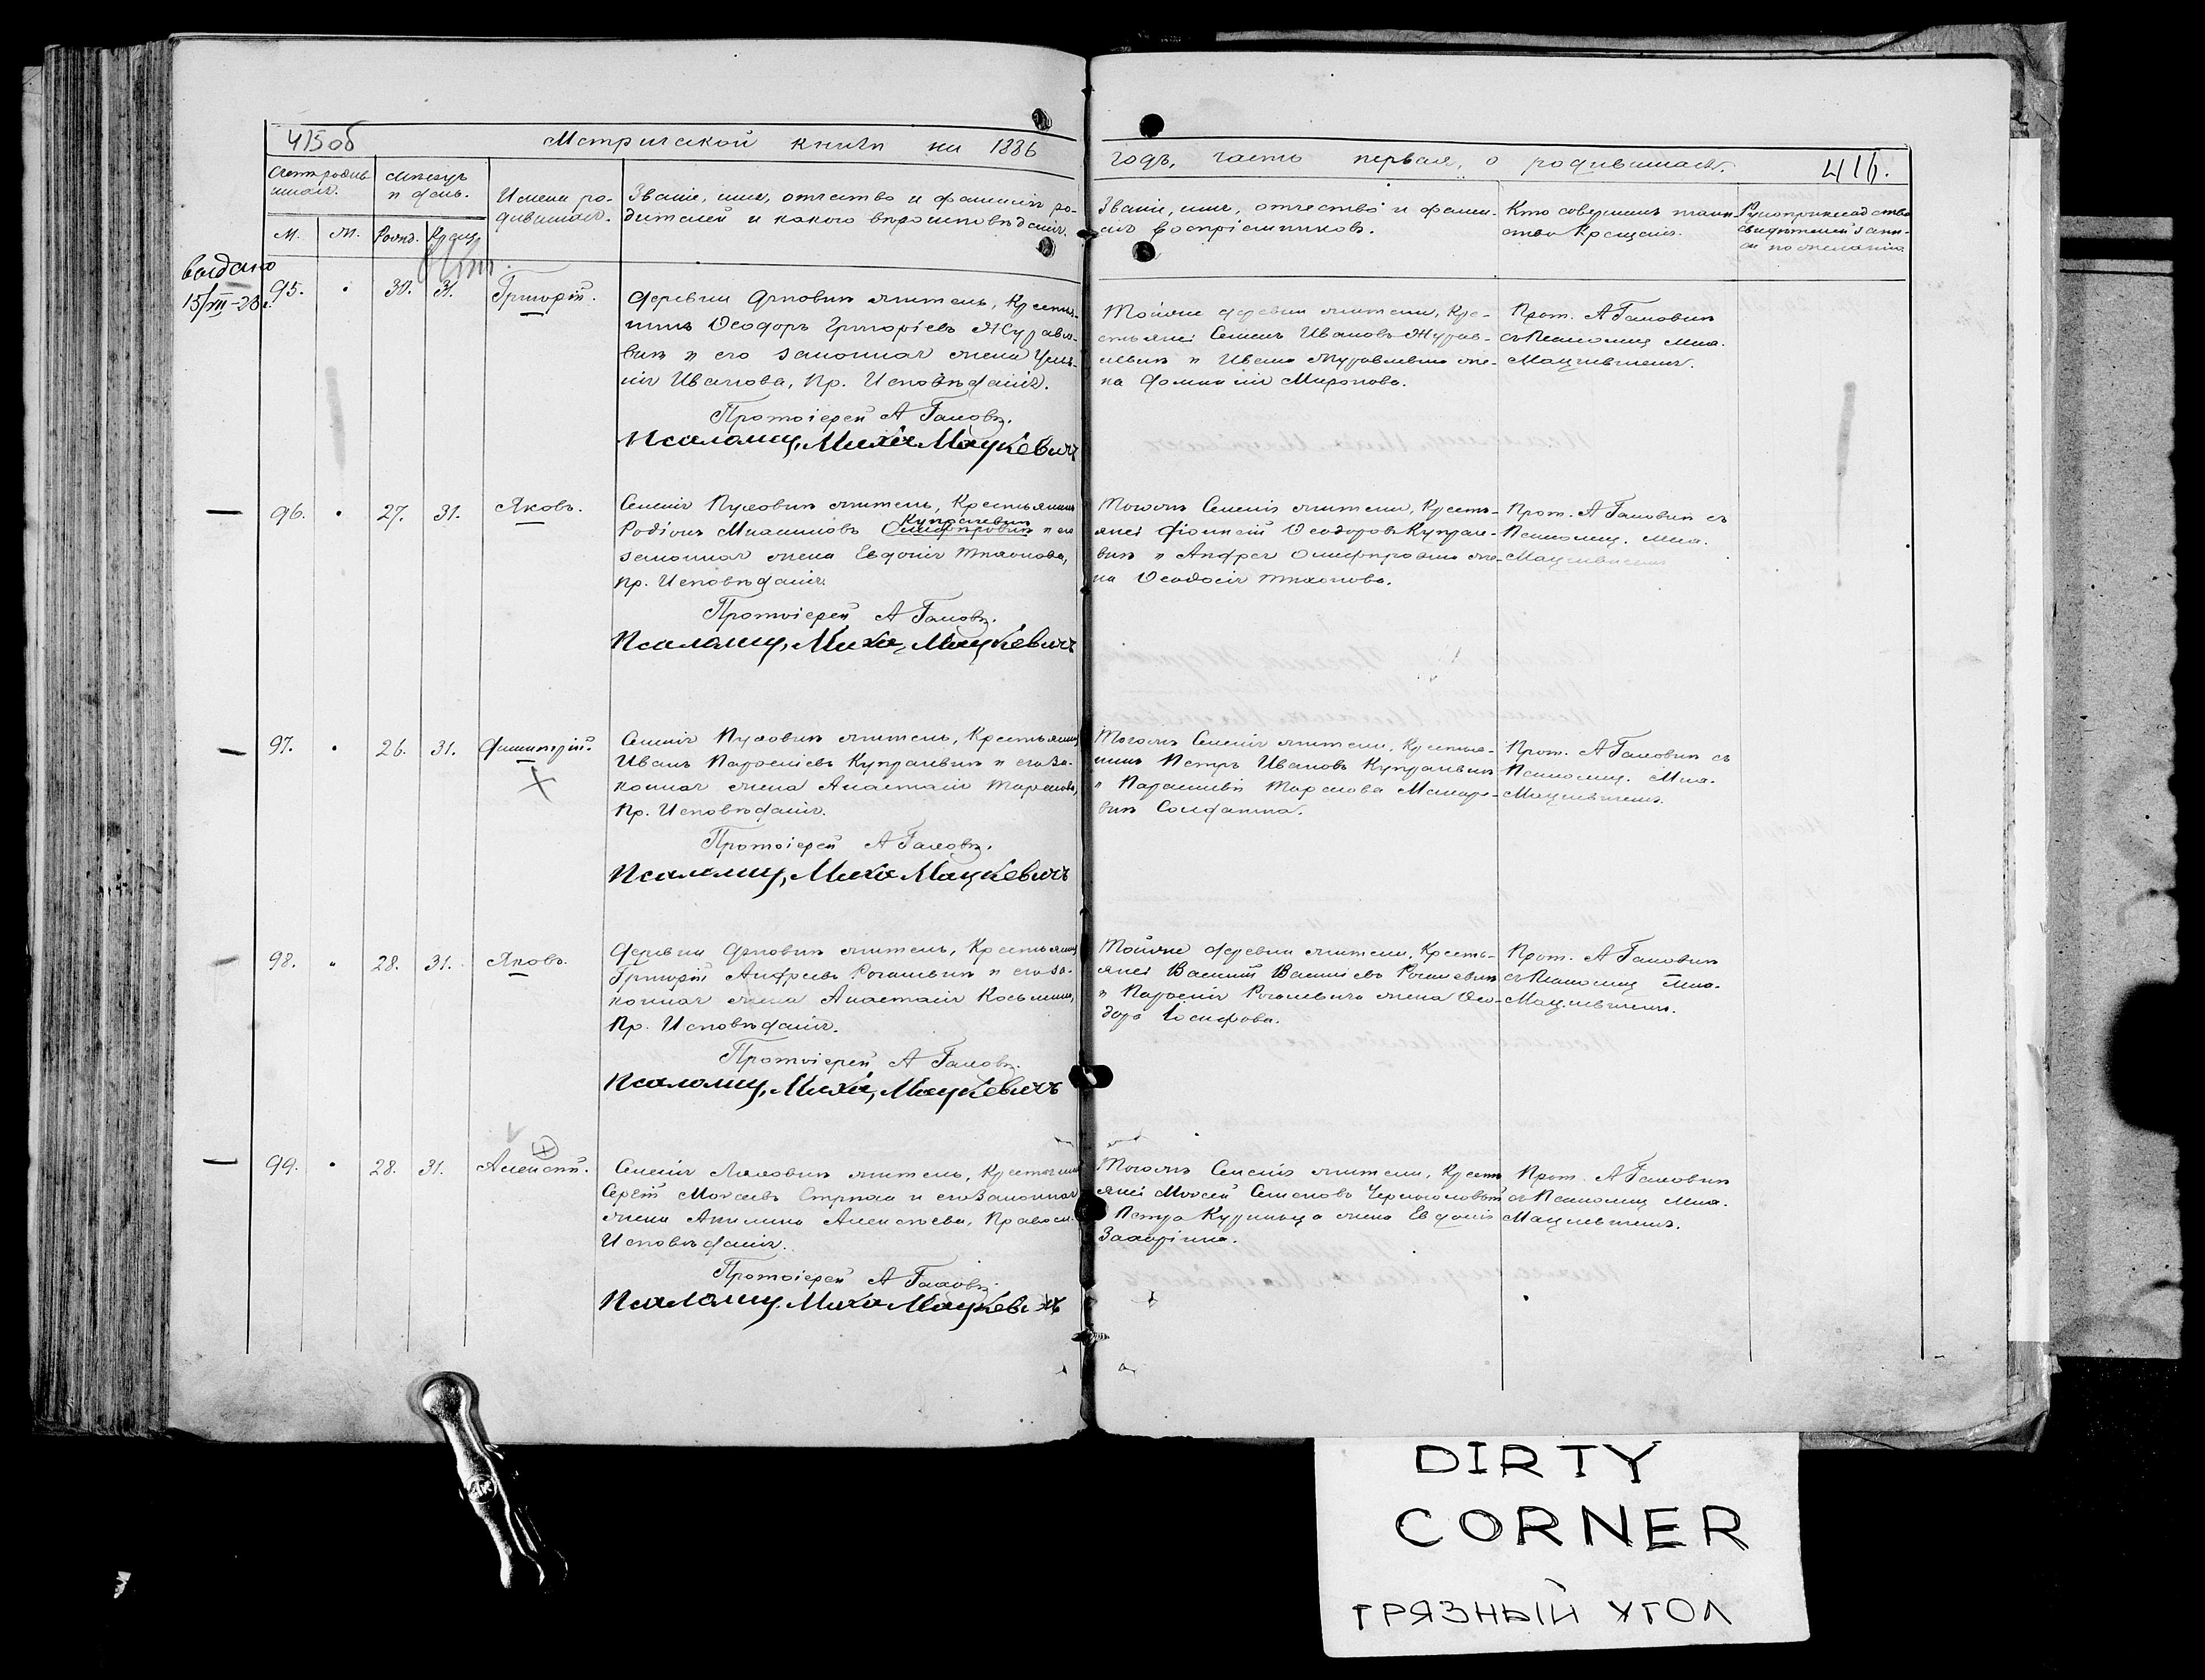 415об
Метрической книги на 1886
годъ, часть первая, о родившихся.
416.
Счетъ родив-
шихся.
М.
Ж.
Мѣсяцъ
и день.
Рожд.
Крещ.
Имена ро-
дившихся.
Званіе, имя, отчество и фамилія ро-
дителей и какого вѣроисповѣданія.
Званіе, имя, отчество и фами-
лія воспріемниковъ.
Кто совершилъ таин-
ство Крещенія.
Рукоприкладство
свидѣтелей запи-
си по желанію
выдано
15/VII-23г.
95.
30.
31.
Григорій.
Деревни жителъ, Крестья-
нинъ Ѳеодоръ Григоріевъ Журавле-
вичъ и его законная жена
Иванова, Пр. Исповѣданія.
Протоіерей А Галовъ.
Псаломщ, Миха Мацкевичъ
Тойже деревни жители, Кре-
стьяне Семенъ Ивановъ Журав-
левичъ и Ивана Журавлевича же-
на Домникія Миронова.
Прот. А Галовичъ
съ Псаломщ Мих.
Мацкевичемъ.
96.
27.
31.
Яковъ.
Селенія Пуховичъ житель, Крестьянинъ
Родіонъ Купрачевичъ и его
законная жена Евдокія Тихонова,
Пр. Исповѣданія.
Протоіерей А Галовъ.
Псаломщ, Миха, Мацкевичъ
Тогожъ Селенія жители, Кресть-
яне Ѳеодоровъ Купрач-
вичъ и Андрея же-
на Ѳеодосія Тихонова.
Прот. А Галовичъ съ
Псаломщ. Мих.
Мацкевичемъ
97.
26.
31.
Димитрій.
Селенія Пуховичъ житель, Крестьянинъ
Иванъ Купрачевичъ и его за-
конная жена Анастасія Тарасова,
Пр. Исповѣданія.
Протоіерей А Галовъ.
Псаломщ, Миха Мацкевичъ
Тогожъ Селенія жители, Крестья-
нинъ Петръ Ивановъ Купрачевичъ
и Параскева Тарасова Макаре-
вичъ Солдатка.
Прот. А Галовичъ съ
Псаломщ. Мих.
Мацкевичемъ.
98.
28.
31.
Яковъ.
Деревни жителъ, Крестьянинъ
Григорій Андреевъ Рогалевичъ и его за-
конная жена Анастасія Косьмина,
Пр. Исповѣданія.
Протоіерей А Галовъ.
Псаломщ, Миха, Мацкевичъ
Тойже деревни жители, Кресть-
яне Василій Василіевъ Рогалевичъ
и Рогалевича жена Ѳео-
дора Іосифова.
Прот. А Галовичъ
съ Псаломщ Мих.
Мацкевичемъ.
99.
28.
31.
Алексѣй.
Селенія житель, Крестьянинъ
Сергѣй Моисеевъ и его Законная
жена Акилина Алексѣева, Правосл.
Исповѣданія.
Протоіерей А Галовъ.
Псаломщ. Миха Мацкевичъ
Тогожъ Селенія жители, Кресть-
яне Моисей Семеновъ
и Петра жена Евдокія
Захаріина.
Прот. А Галовичъ
съ Псаломщ Мих.
Мацкевичемъ.
DIRTY
CORNER
ГРЯЗНЫЙ УГОЛ